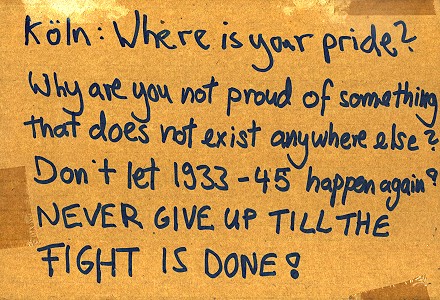 Köln: Where is your pride?
Why are you not proud of something
that does not exist anywhere else?
Don't let 1933-45 happen again!
NEVER GIVE UP TILL THE
FIGHT IS DONE!